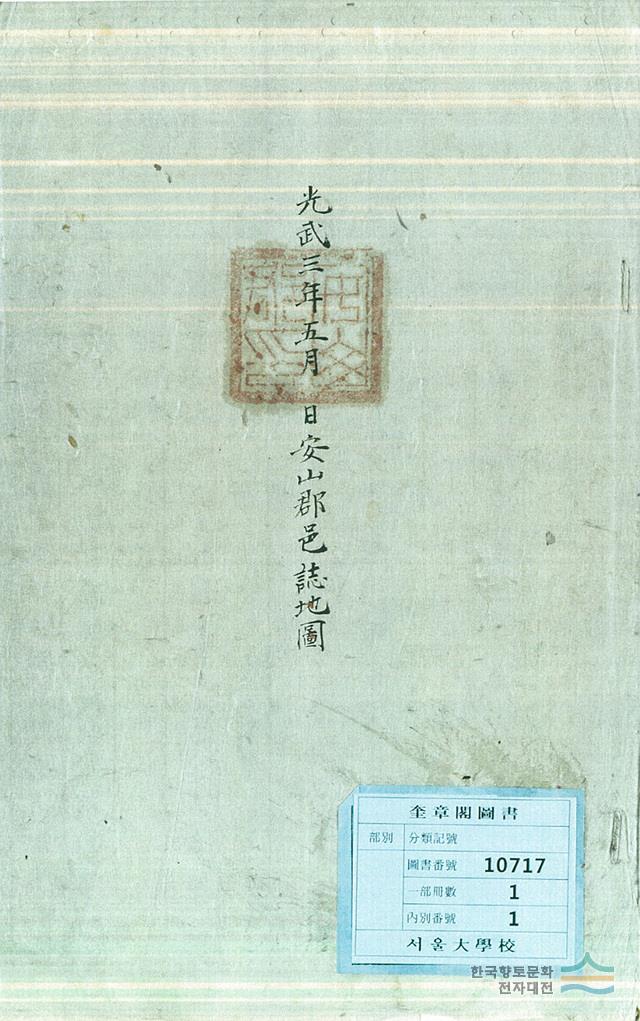 光武三年五月 日安山郡邑誌地圖
奎章閣圖書
部別
分類記號
圖書番號 10717
一部冊數 1
內別番號 1
서울大學校
한국향토문화
전자대전